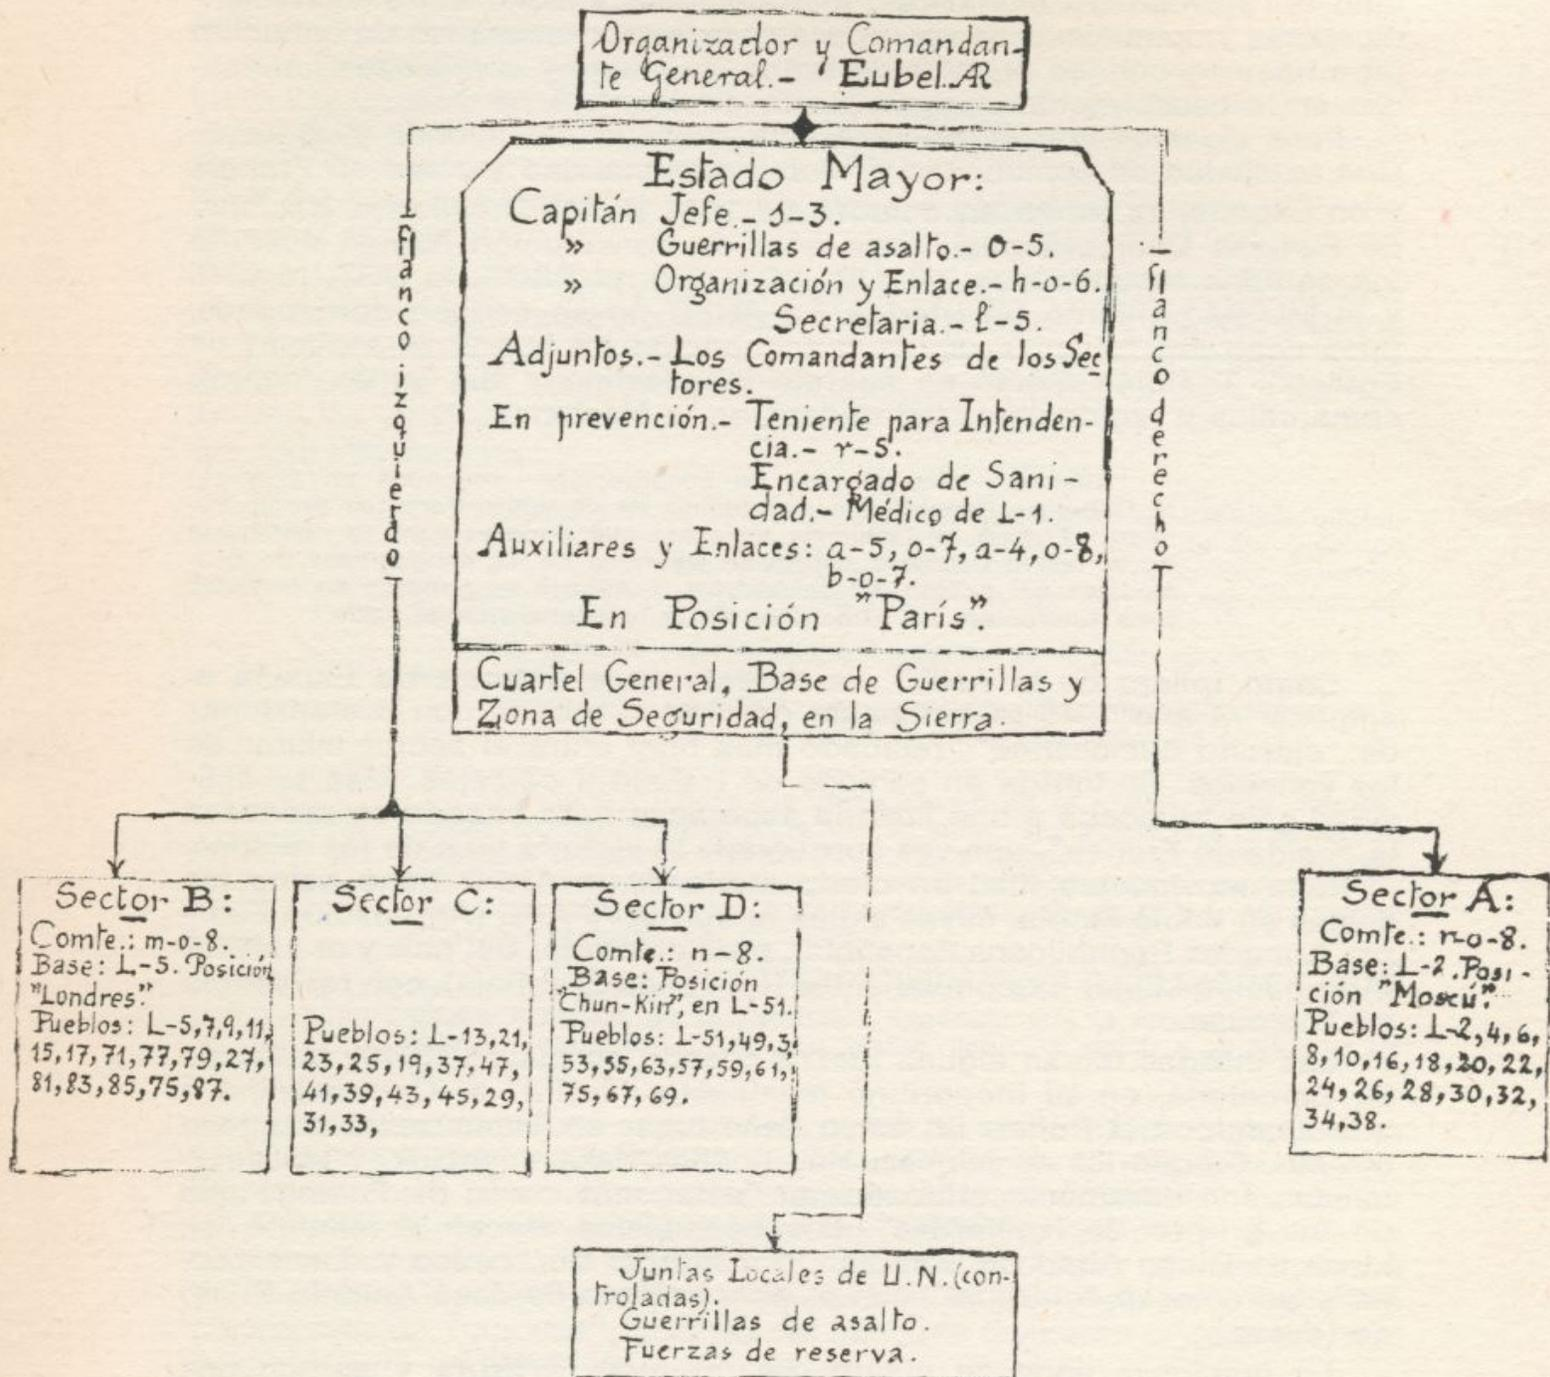 Organizador y Comandan-
te General.- Eubel.AR
Estado Mayor:
Capitán Jefe.- s-3.
» Guerrillas de asalto.- o-5.
» Organización y Enlace.- h-o-6.
Secretaria.- l-5.
Adjuntos.- Los Comandantes de los Sec
tores.
En prevención.- Teniente para Intenden-
cia.- r-5.
Encargado de Sani-
dad.- Médico de L-1.
Auxiliares y Enlaces: a-5, o-7, a-4, o-8,
b-o-7.
En Posición "París".
Cuartel General, Base de Guerrillas y
Zona de Seguridad, en la Sierra.
flanco izquierdo
flanco derecho
Sector B:
Comte.: m-o-8.
Base: L-5. Posición
"Londres".
Pueblos: L-5,7,9,11,
15,17,71,77,79,27,
81,83,85,75,87.
Sector C:
Pueblos: L-13,21,
23,25,19,37,47,
41,39,43,45,29,
31,33,
Sector D:
Comte.: n-8.
Base: Posición
"Chun-Kin", en L-51.
Pueblos: L-51,49,3,
53,55,63,57,59,61,
75,67,69.
Sector A:
Comte.: n-o-8.
Base: L-2. Posi-
ción "Moscú".
Pueblos: L-2,4,6,
8,10,16,18,20,22,
24,26,28,30,32,
34,38.
Juntas Locales de U.N. (con-
troladas).
Guerrillas de asalto.
Fuerzas de reserva.